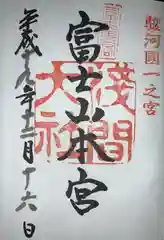 駿河國一之宮
富士山本宮
淺間
大社
平成十九年十二月十六日